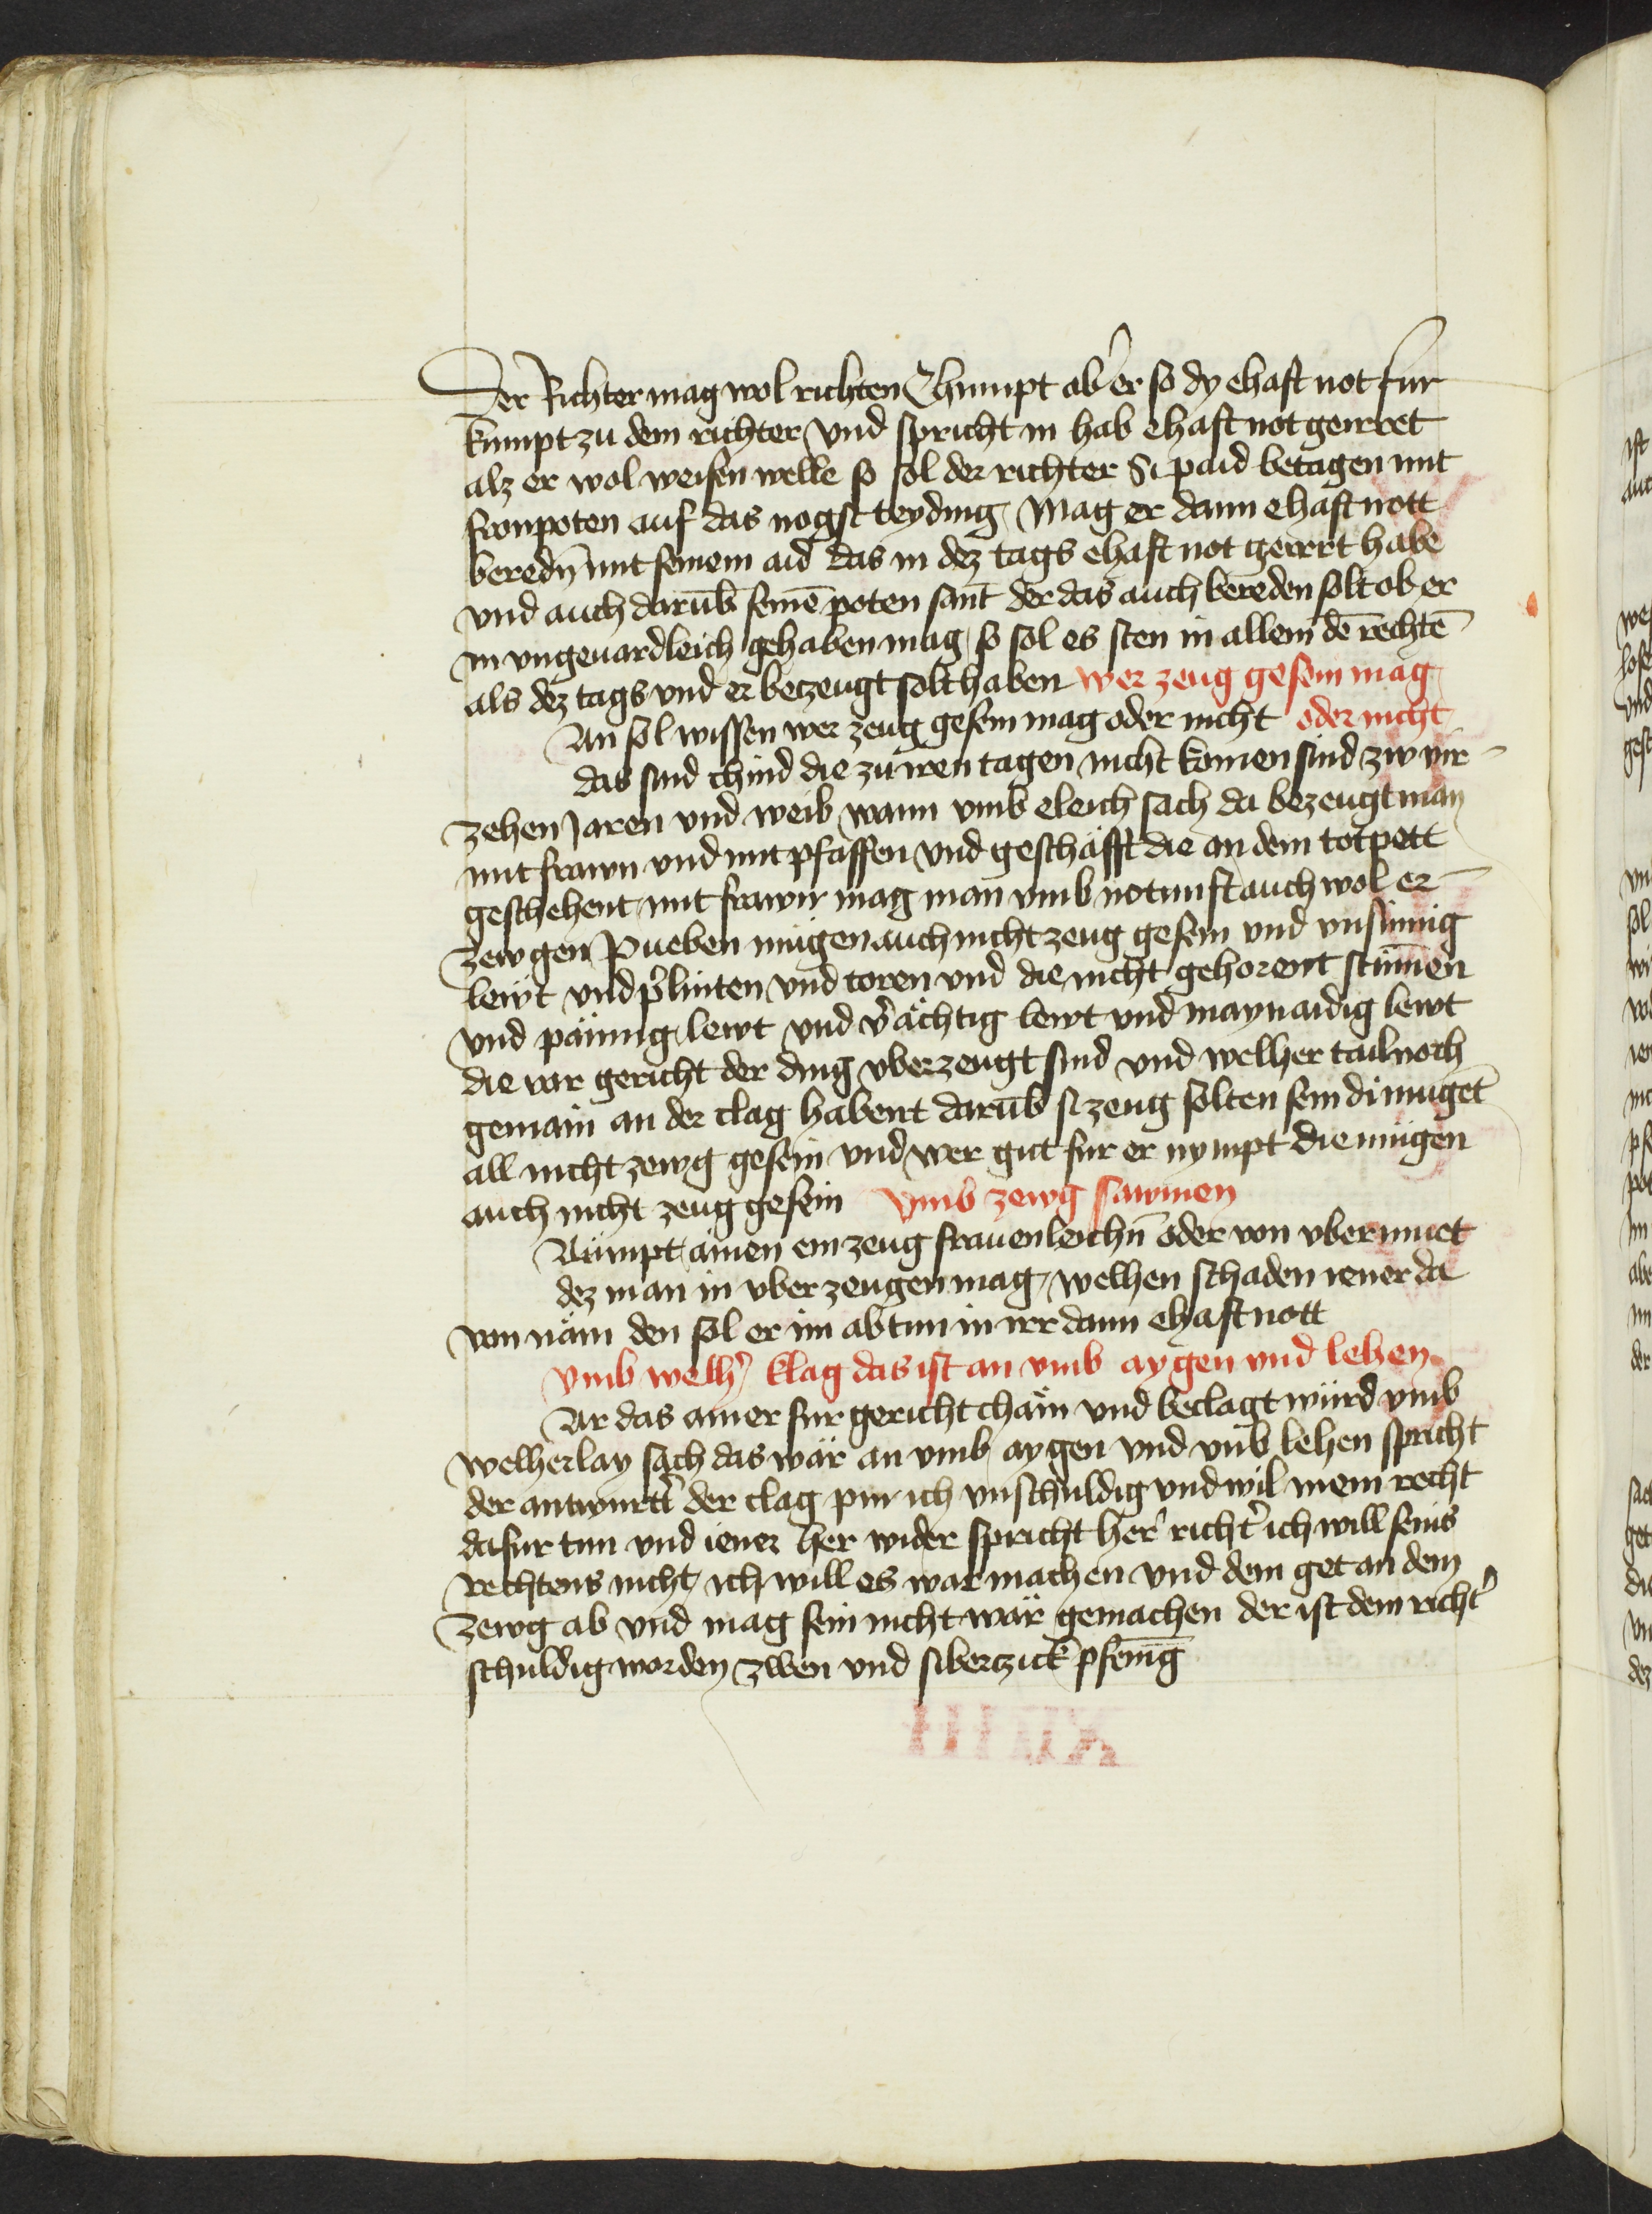 Der Richter mag wol richten Chumpt aber er so dy ehaft not fur
kumpt zu dem richter vnd spricht in hab ehaft not geirret
alz er wol weisen welle so sol der richter Si paid betagen mit
fronpoten auf das nogst teyding Mag er dann ehaft nott
beredn̄ mit seinem aid das in dez tags ehaft not geirrt habe
vnd auch darūb seinē poten sant der das auch bereden solt ob er
in vngeuardleich gehaben mag so sol es sten in allem dē rechtē
als dez tags vnd er bezeugt solt haben wer zeug gesein mag
An sol wissen wer zeug gesein mag oder nicht oder nicht
das sind chind die zu iren tagen nicht komen sind zw vir-
zehen Jaren vnd weib wann vmb eleich sach da bezeugt man
mit frawn vnd mit pfaffen vnd geschäfft die an dem totpett
geschehent mit frawn mag man vmb notnunft auch wol er-
zewgen Pueben mügen auch nicht zeug gesein vnd vnsinnig
lewt vnd plinten vnd toren vnd die nicht gehorent stūmen
vnd pännig lewt vnd v̾ächtig lewt vnd maynaidig lewt
die vor gericht der ding vberzeugt sind vnd welher tail noch
gemain an der clag habent darūb si zeug solten sein di mugēt
all nicht zewg gesein vnd wer gut fur er nympt die mügen
auch nicht zeug gesein vmb zewg sawmen
Aumpt ainen ein zeug frauenleichn̄ oder von vbermuet
dez man in vberzeugen mag welhen schaden iener da
von näm den sol er im abtun in irr dann ehaft nott
vmb welh̾ klag das ist an vmb aygen vnd lehen
Ar das ainer fur gericht chäm vnd beclagt würd vmb
welherlay sach das wär an vmb aygen vnd vmb lehen spricht
der antwurt̾ der clag pin ich vnschuldig vnd wil mein recht
dafur tun vnd iener her wider spricht her̾ richt̾ ich will seins
rechtens nicht ich will es war machen vnd dem get an dem
zewg ab vnd mag sein nicht wär gemachen der ist dem richt̾
schuldig worden zwen vnd sibenczick pfenīg